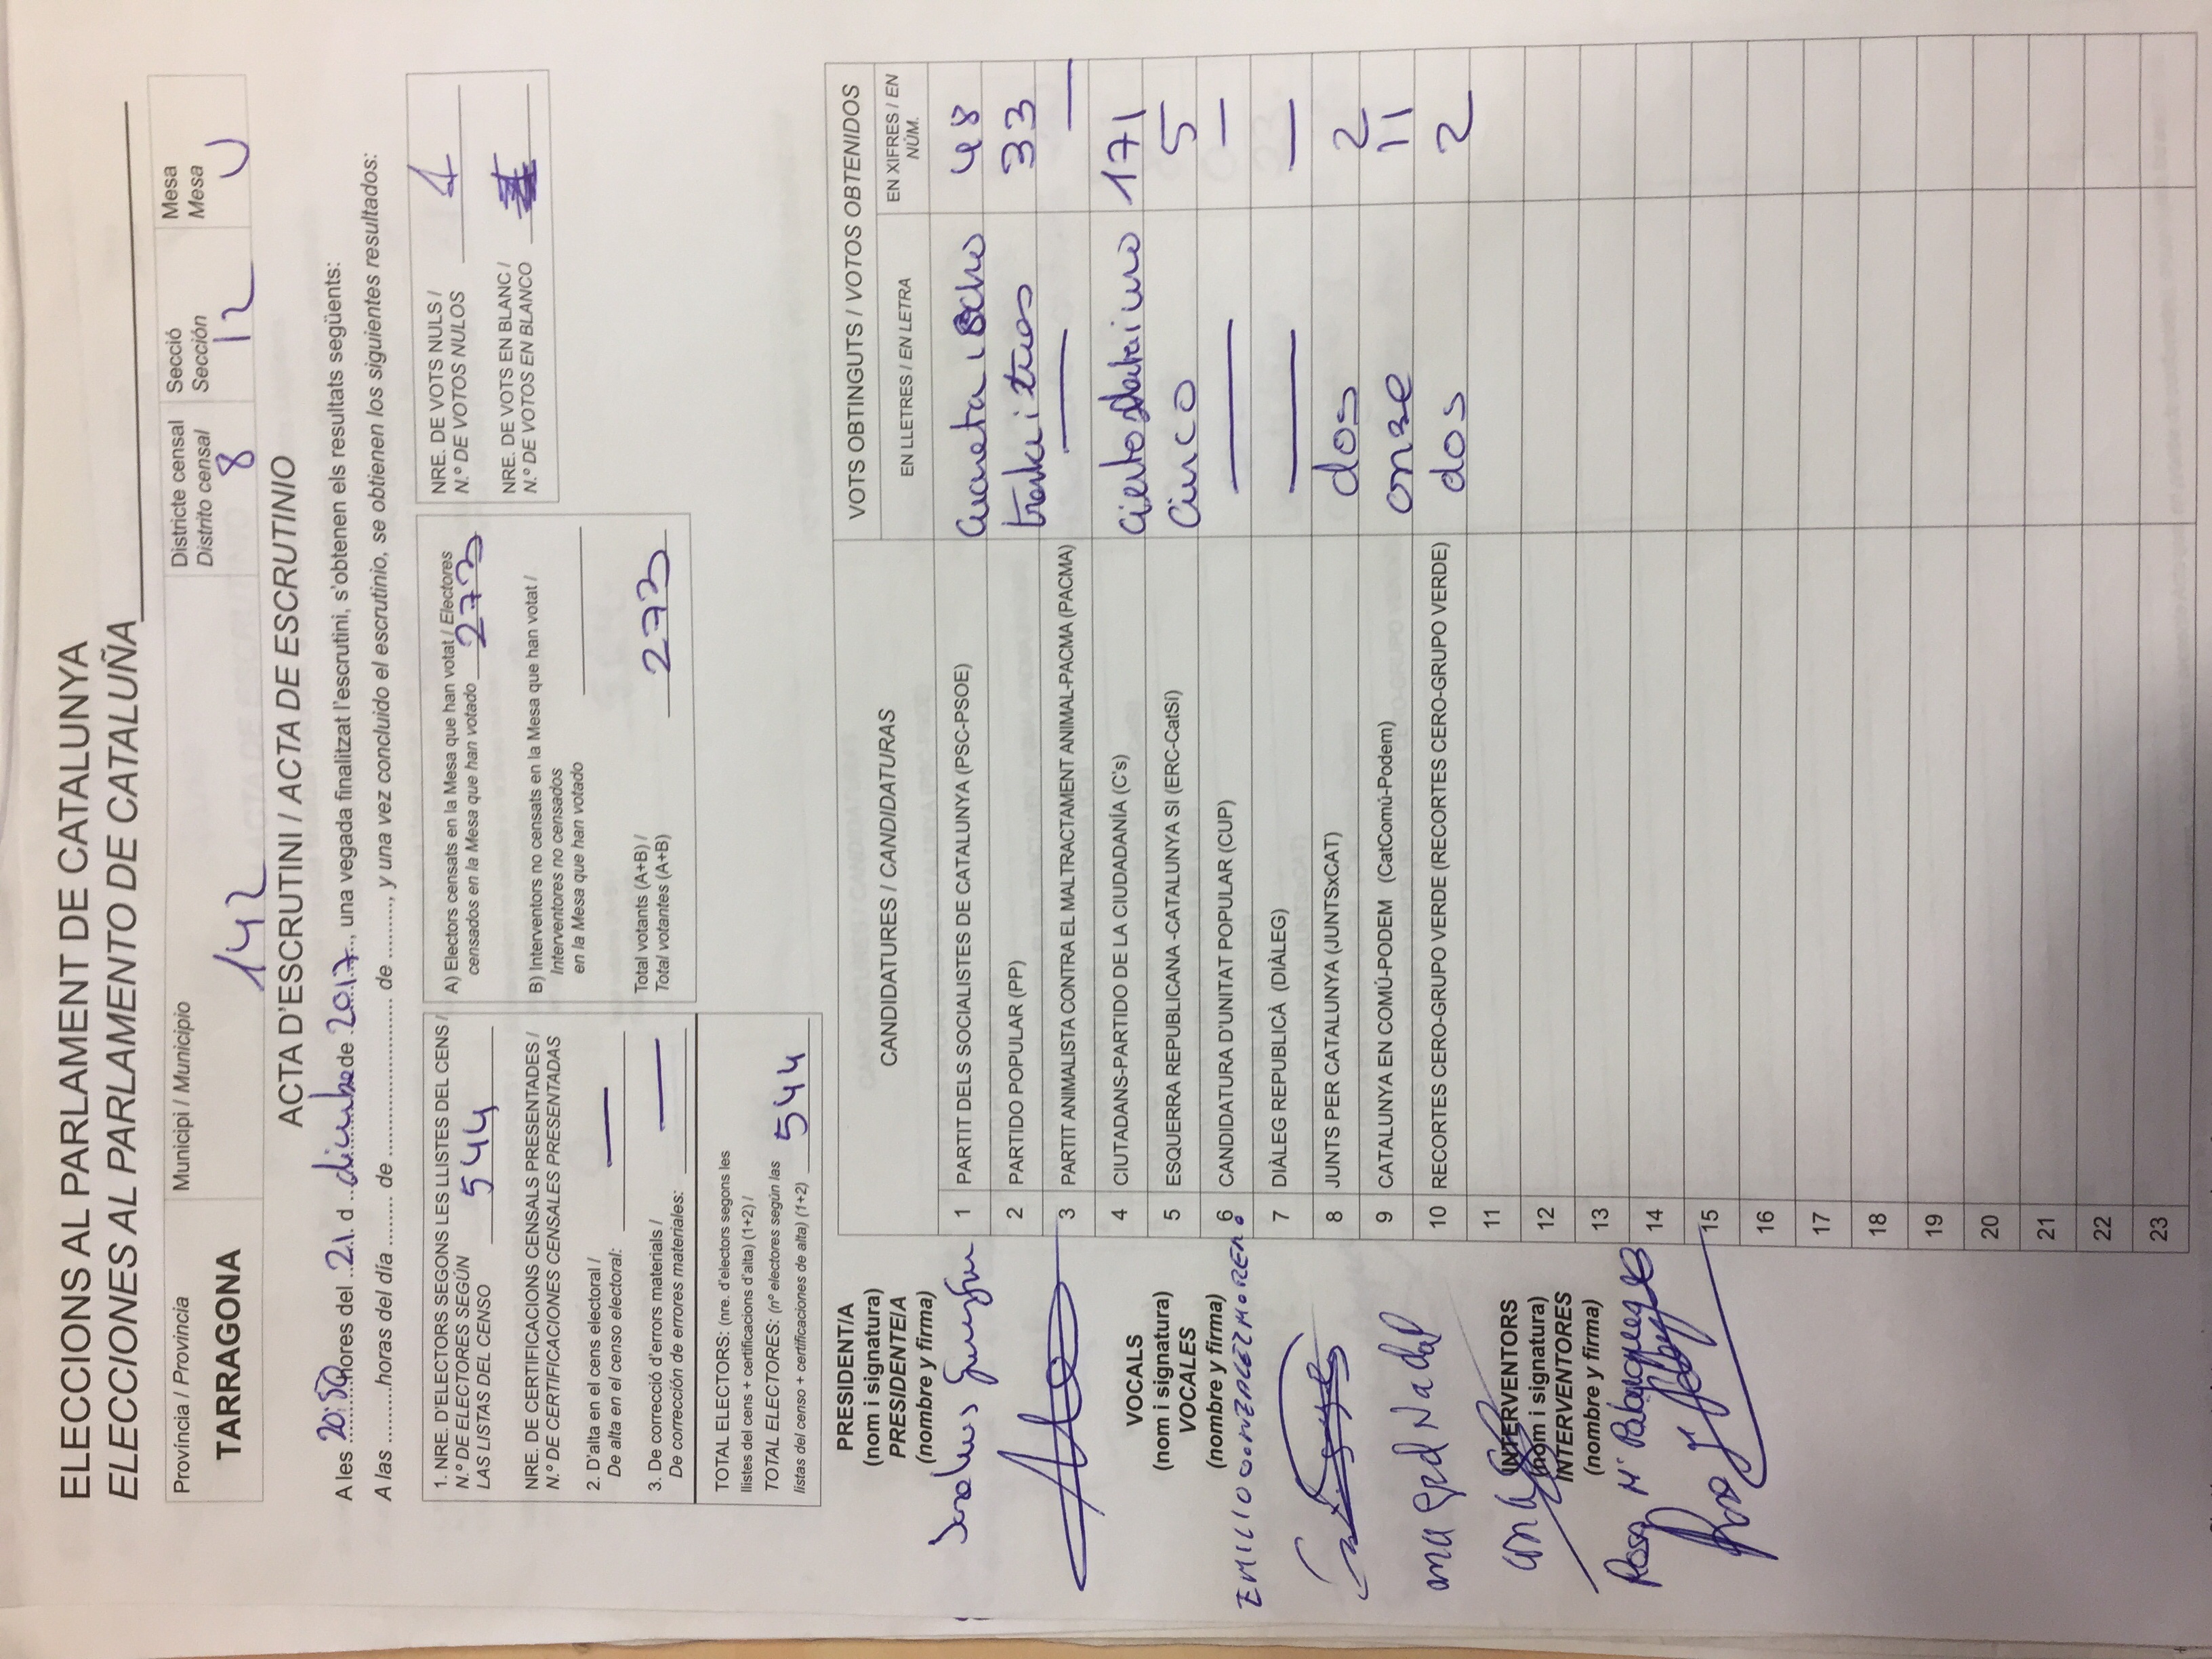 ELECCIONS AL PARLAMENT DE CATALUNYA
ELECCIONES AL PARLAMENTO DE CATALUÑA
Província / Provincia
TARRAGONA
Municipi / Municipio
142
Districte censal
Distrito censal
8
Secció
Sección
12
Mesa
Mesa
U
ACTA D'ESCRUTINI / ACTA DE ESCRUTINIO
A les 20:50 hores del 21 d diciembre de 2017, una vegada finalitzat l'escrutini, s'obtenen els resultats següents:
A las .........horas del día ........ de ....................... de ........., y una vez concluido el escrutinio, se obtienen los siguientes resultados:
1. NRE. D'ELECTORS SEGONS LES LLISTES DEL CENS /
N.º DE ELECTORES SEGÚN
LAS LISTAS DEL CENSO 544
NRE. DE CERTIFICACIONS CENSALS PRESENTADES /
N.º DE CERTIFICACIONES CENSALES PRESENTADAS
2. D'alta en el cens electoral /
De alta en el censo electoral: —
3. De correcció d'errors materials /
De corrección de errores materiales: —
TOTAL ELECTORS: (nre. d'electors segons les
llistes del cens + certificacions d'alta) (1+2) /
TOTAL ELECTORES: (nº electores según las
listas del censo + certificaciones de alta) (1+2) 544
A) Electors censats en la Mesa que han votat / Electores
censados en la Mesa que han votado 273
B) Interventors no censats en la Mesa que han votat /
Interventores no censados
en la Mesa que han votado
Total votants (A+B) /
Total votantes (A+B) 273
NRE. DE VOTS NULS /
N.º DE VOTOS NULOS 1
NRE. DE VOTS EN BLANC /
N.º DE VOTOS EN BLANCO
PRESIDENT/A
(nom i signatura)
PRESIDENTE/A
(nombre y firma)
VOCALS
(nom i signatura)
VOCALES
(nombre y firma)
EMILIO GONZALEZ MORENO
Nadal
INTERVENTORS
(nom i signatura)
INTERVENTORES
(nombre y firma)
Rosa Mª
CANDIDATURES / CANDIDATURAS
VOTS OBTINGUTS / VOTOS OBTENIDOS
EN LLETRES / EN LETRA
EN XIFRES / EN NÚM.
1 PARTIT DELS SOCIALISTES DE CATALUNYA (PSC-PSOE) cuareta i ocho 48
2 PARTIDO POPULAR (PP) 33
3 PARTIT ANIMALISTA CONTRA EL MALTRACTAMENT ANIMAL-PACMA (PACMA) — —
4 CIUTADANS-PARTIDO DE LA CIUDADANÍA (C's) 171
5 ESQUERRA REPUBLICANA -CATALUNYA SI (ERC-CatSí) cinco 5
6 CANDIDATURA D'UNITAT POPULAR (CUP) — —
7 DIÀLEG REPUBLICÀ (DIÀLEG) — —
8 JUNTS PER CATALUNYA (JUNTSxCAT) dos 2
9 CATALUNYA EN COMÚ-PODEM (CatComú-Podem) onze 11
10 RECORTES CERO-GRUPO VERDE (RECORTES CERO-GRUPO VERDE) dos 2
11
12
13
14
15
16
17
18
19
20
21
22
23